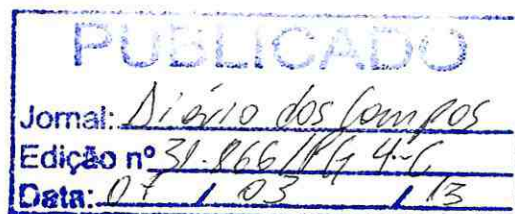 PUBLICADO
Jornal: Diário dos Campos
Edição nº 31.866/PG 4-C
Data: 07 / 03 / 13